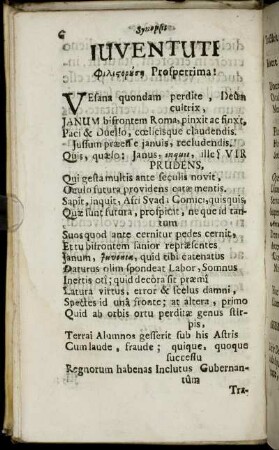 6
Synopsis
IUVENTUTI
Prosperrima!
VEsana quondam perdite, Deûm
cultrix,
JANUM bifrontem Roma, pinxit ac finxt,
Paci & Duello, cœlicisque claudendis.
Jussum præesse januis, recludendis.
Quis, quæso: Janus, inquit, ille? VIR
PRUDENS,
Qui gesta multis ante seculis novit,
Oculo futura providens catæ mentis.
Sapit, inquit, Afri Svadi Comici, quisquis,
Quæ sunt futura, prospicit, ne que id tan
tum
Suos quod ante cernitur pedes cernit,
Et tu bifrontem sanior repræsentes
Janum, Juventa, quid tibi catenatus
Daturus olim spondeat Labor, Somnus
Inertis oti; quid decora sit præmi
Latura virtus, error & scelus damni,
Spectes id unâ fronte; at altera, primo
Quid ab orbis ortu perditæ genus stir-
pis,
Terrai Alumnos gesserit sub his Astris
Cum laude, fraude; quique, quoque
successu
Regnorum habenas Inclutus Gubernan-
tûm
Tra-